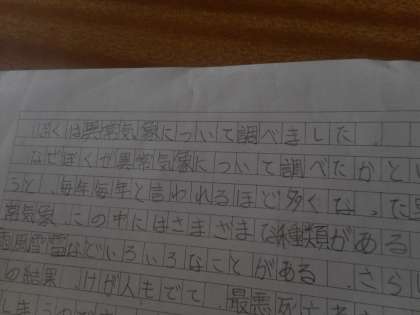 ぼくは異常気象について調べました。
なぜぼくが異常気象について調べたかとい
うと、毎年毎年と言われるほど多くな、た
常気象、この中にはさまざまな種類がある
風雷などいろいろなことがある。さら
の結果、けが人もでて、最悪死